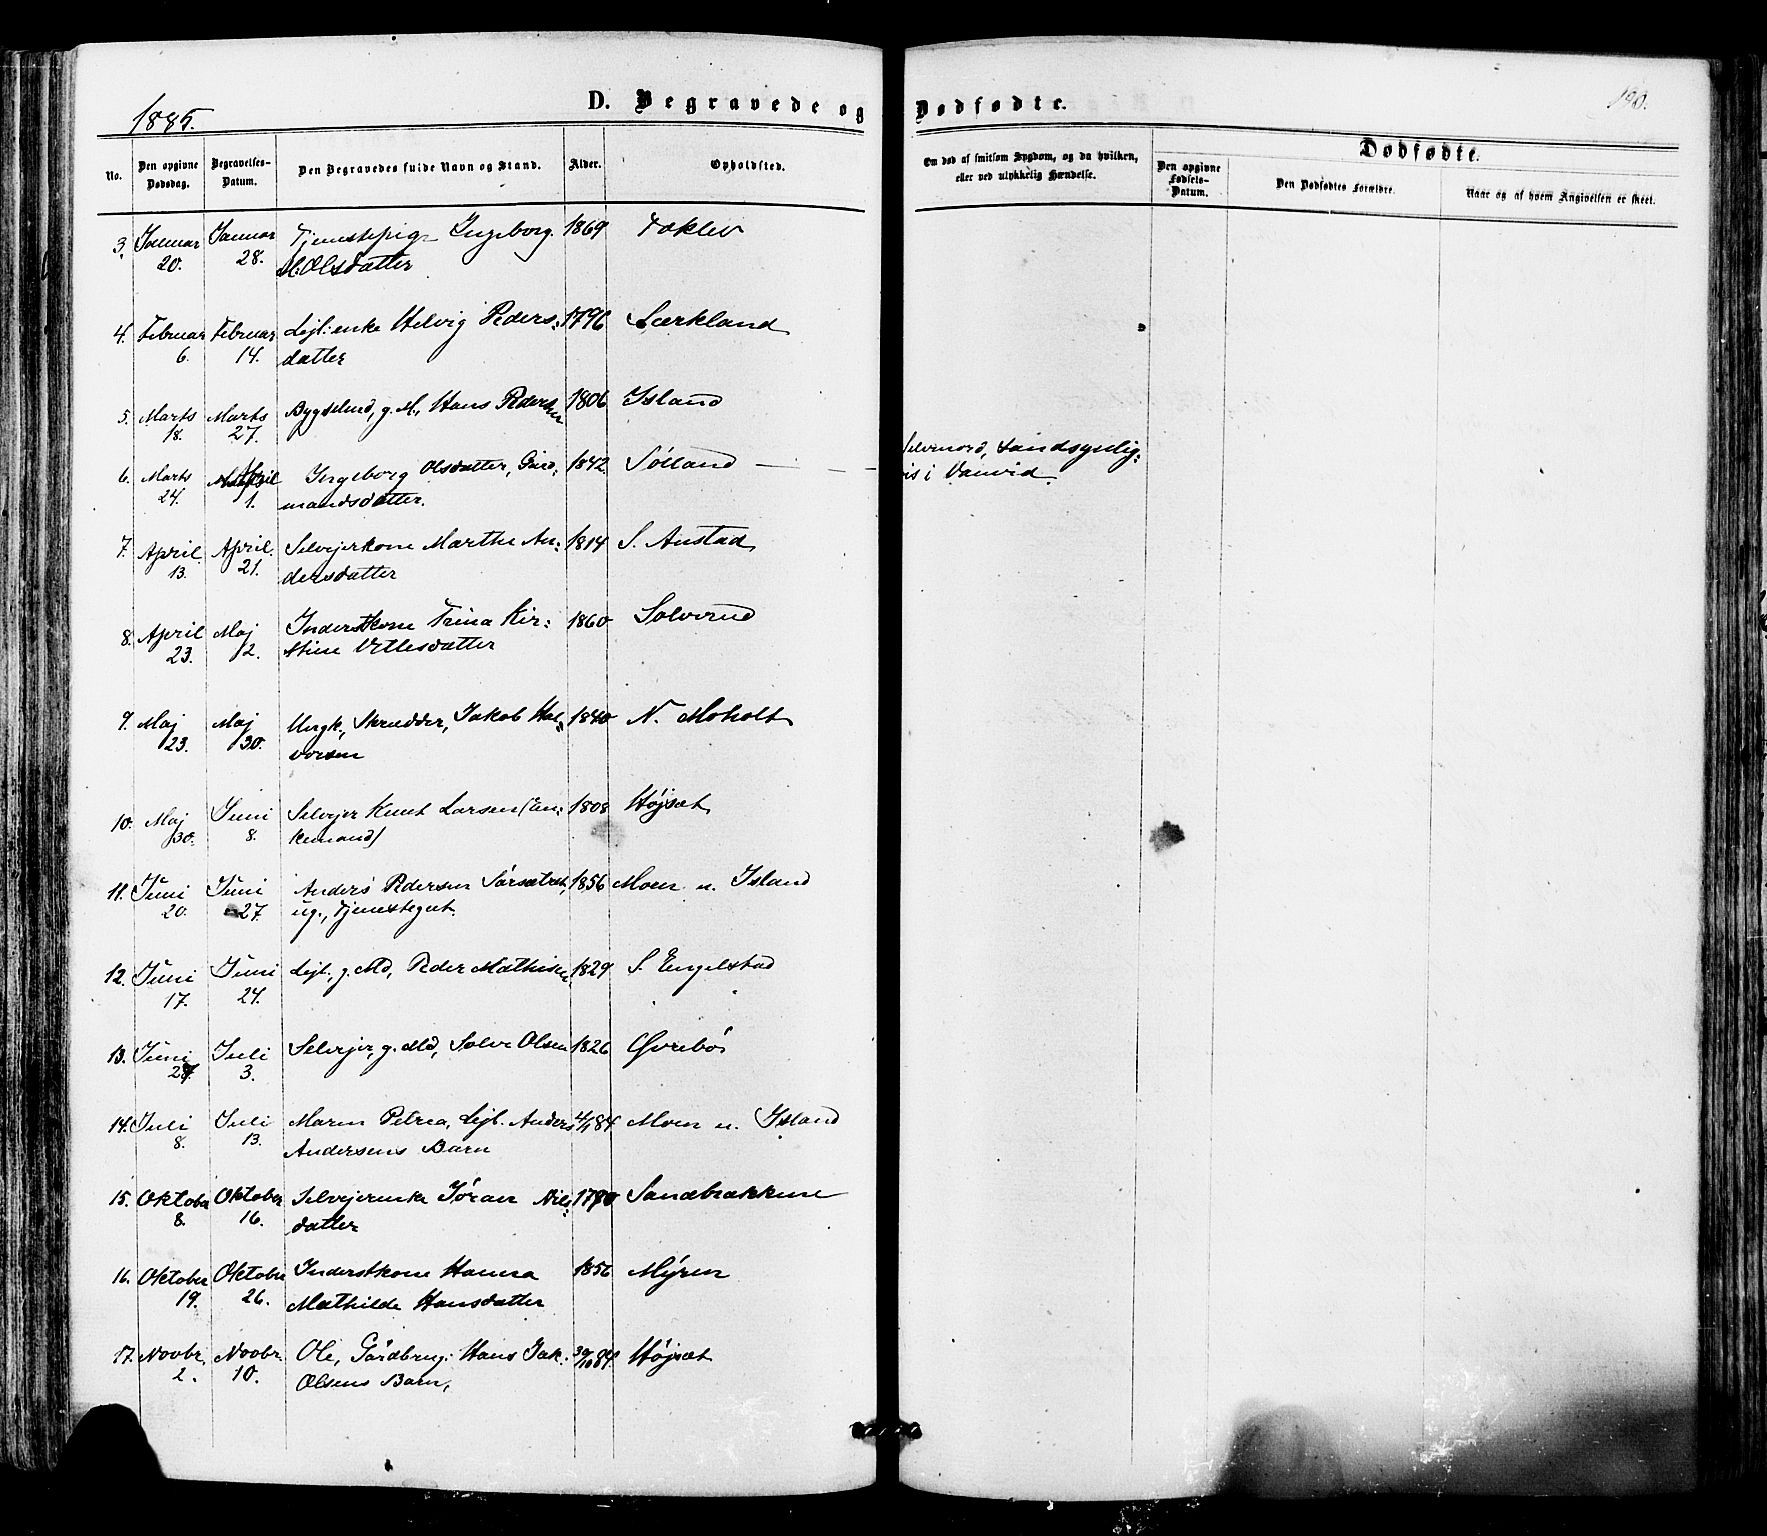 1885.
D. Begravede og Dødfødte.
190.
No.
Den opgivne Dødsdag.
Begravelses-Datum.
Den Begravedes fulde Navn og Stand.
Alder.
Opholdsted.
Om død af smitsom Sygdom, og da hvilken, eller ved ulykkelig Hændelse.
Dødfødte.
Den opgivne Fødsels-Datum.
Den Dødfødtes Forældre.
Naar og af hvem Angivelsen er skeet.
3. Januar Januar Tjenestepige Ingeborg 1869 Foklev
20. 28. M. Olsdatter
4. Februar Februar Lejl: enke Helvig Peders: 1796 Særkland
6. 14. datter
5. Marts Marts Bygselmd, g. M., Hans Pedersen 1806 Island
18. 27.
6. Marts April Ingeborg Olsdatter, Gård: 1842 Sølland — Selvmord, sandsynlig:
24. 1. mandsdatter. vis i Vanvid.
7. April April Selvejerkone Marthe An: 1814 S. Anstad
13. 21. dersdatter
8. April Maj Inderstkone Trina Kir: 1860 Solverud
23. 2. stine Vetlesdatter
9. Maj Maj Ungk., Skrædder, Jakob Hal: 1840 N. Moholt
23. 30. vorsen
10. Maj Juni Selvejer Knut Larsen (En: 1808 Højsæt
30. 8. kemand)
11. Juni Juni Anders Pedersen Sørsætret, 1856 Moen u. Island
20. 27. ug., Tjenestegut.
12. Juni Juni Lejl., g. Md, Peder Mathisen 1829 S. Engelstad
17. 24.
13. Juni Juli Selvejer, g. Md, Solve Olsen 1826 Øvrebø
27. 3.
14. Juli Juli Maren Petrea, Lejl. Anders 4/1 84 Moen u. Island
8. 13. Andersens Barn
15. Oktober Oktober Selvejerenke Jøran Nils: 1790 Sandbækkene
8. 16. datter
16. Oktober Oktober Inderstkone Hanna 1856 Myren
19. 26. Mathilde Hansdatter
17. Novbr. Novbr. Ole, Gårdbrug: Hans Jak. 30/10 84. Højsæt
2. 10. Olsens Barn,